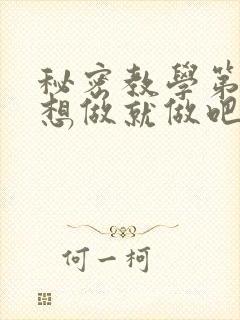 秘密教學第
想做就做吧
何一柯